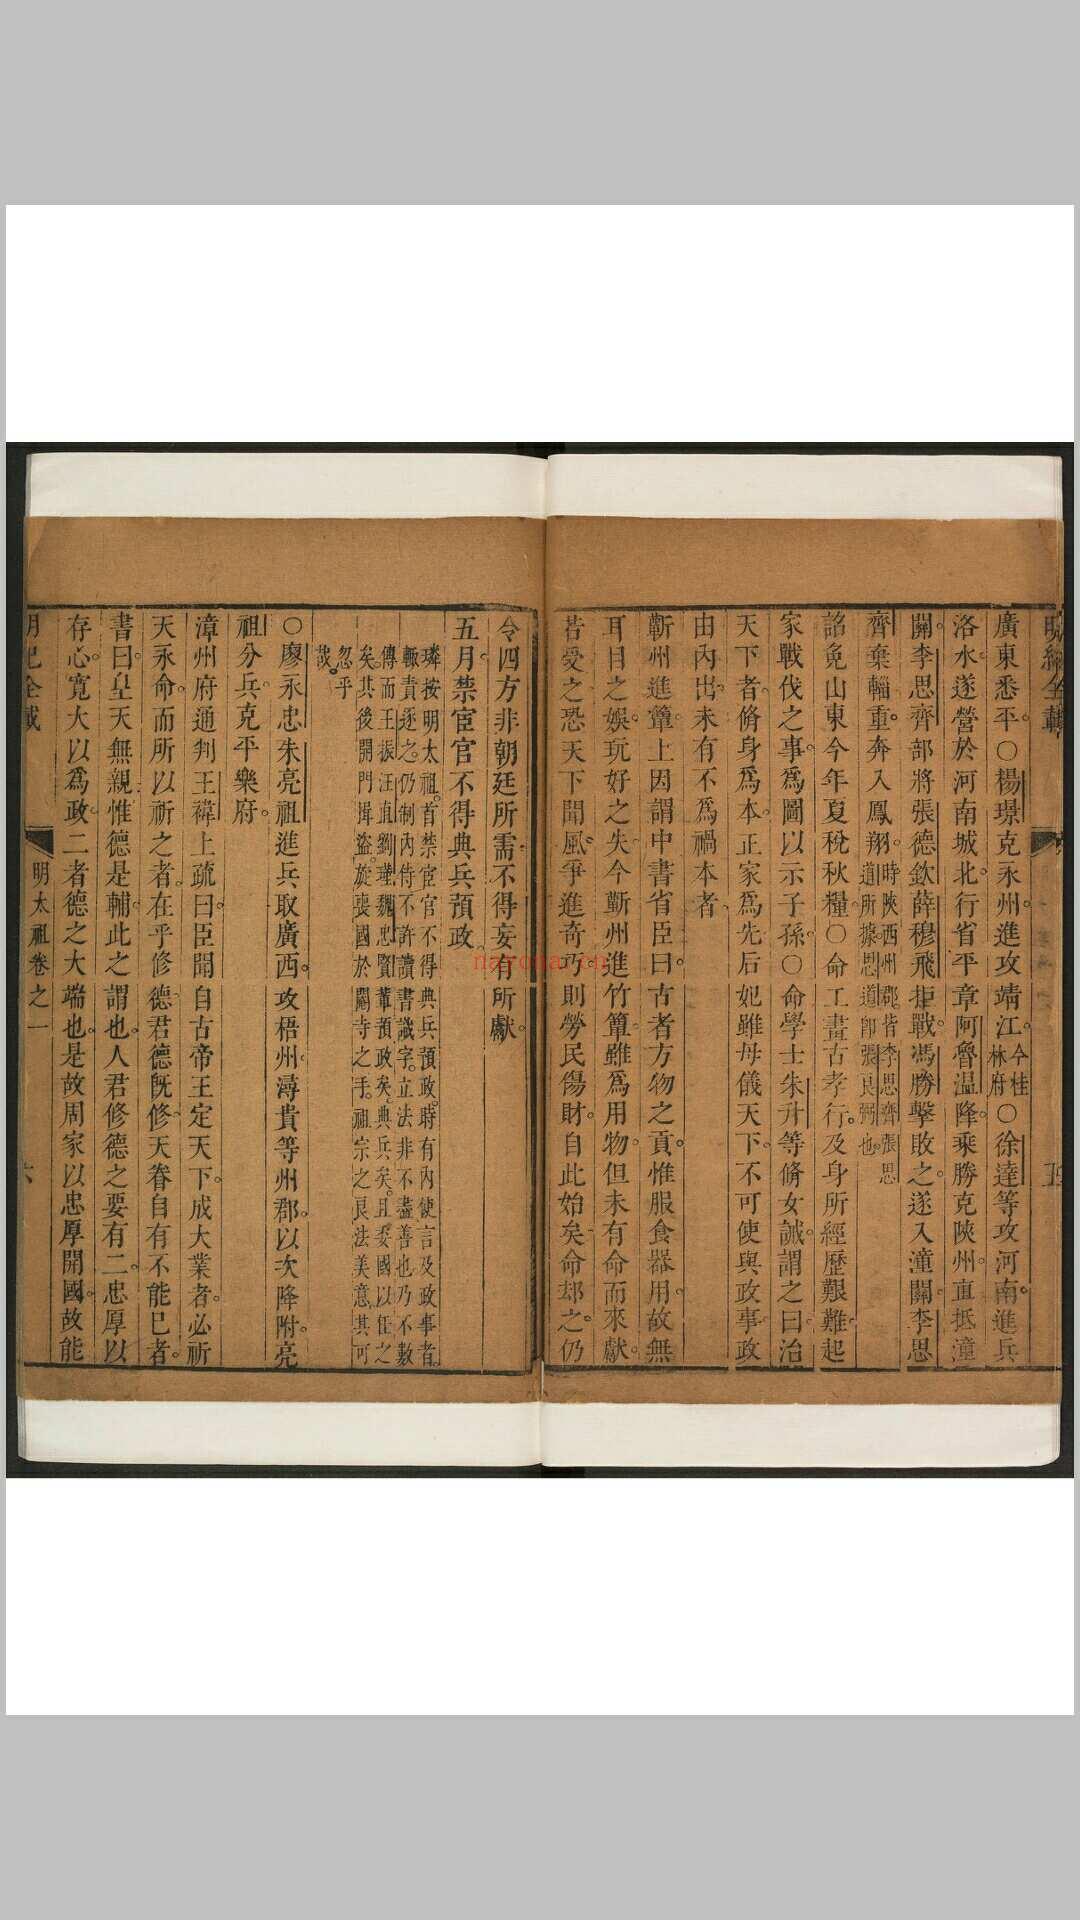 廣東悉平。○楊璟克永州。進攻靖江。今桂林府○徐達等攻河南。進兵
洛水。遂營於河南城北。行省平章阿魯温降。乘勝克陝州。直抵潼
關。李思齊部將張德欽薛穆飛拒戰。馮勝擊敗之。遂入潼關。李思
齊棄輜重奔入鳳翔。時陝西州郡。皆李思齊張思道所據。思道卽張良弼也。
詔免山東今年夏稅秋糧○命工畫古孝行。及身所經歷艱難。起
家戰伐之事。爲圖以示子孫。○命學士朱升等脩女誡。謂之曰治
天下者。脩身爲本。正家爲先。后妃雖母儀天下。不可使與政事。政
由內出。未有不爲禍本者。
蘄州進簟。上因謂中書省臣曰。古者方物之貢。惟服食器用。故無
耳目之娛。玩好之失。今蘄州進竹簟。雖爲用物。但未有命而來獻。
若受之。恐天下聞風爭進奇巧。則勞民傷財。自此始矣。命却之。仍
令四方非朝廷所需。不得妄有所獻。
五月禁宦官不得典兵預政。
璘按明太祖。首禁宦官不得典兵預政。時有內使言及政事者。
輒責逐之。仍制內侍不許讀書識字。立法非不盡善也。乃不數
傳而王振汪直劉瑾魏忠賢輩預政矣。典兵矣。且委國以任之
矣。其後開門揖盜。旋喪國於閹寺之手。祖宗之良法美意。其可
忽乎
哉。
○廖永忠朱亮祖進兵取廣西。攻梧州潯貴等州郡。以次降附。亮
祖分兵克平樂府。
漳州府通判王禕上疏曰。臣聞自古帝王定天下。成大業者。必祈
天永命。而所以祈之者。在乎修德。君德旣修。天眷自有不能已者。
書曰。皇天無親。惟德是輔。此之謂也。人君修德之要有二。忠厚以
存心。寛大以爲政。二者德之大端也。是故周家以忠厚開國。故能
明太祖卷之一
六
nayona.cn